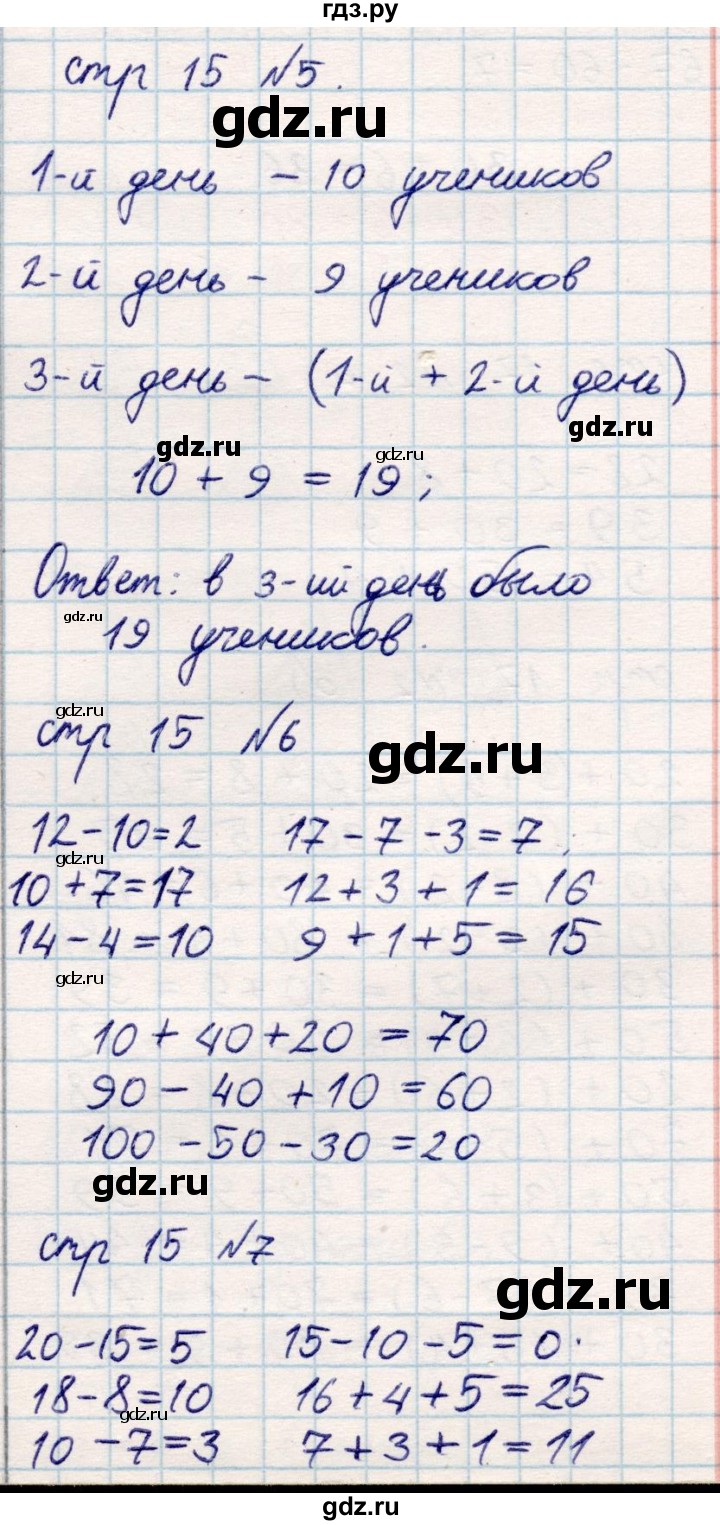 гдз.ру
стр 15 №5.
gdz.ru
1-й день - 10 учеников
2-й день - 9 учеников
3-й день - (1-й + 2-й день)
gdz.ru
gdz.ru
gdz.ru
10 + 9 = 19;
Ответ: в 3-ий день было
gdz.ru
19 учеников.
gdz.ru
стр 15 №6
gdz.ru
12-10=2 17-7-3=7
gdz.ru
10+7=17 12+3+1=16
14-4=10 9+1+5=15
gdz.ru
10+40+20=70
90-40+10=60
100-50-30=20
gdz.ru
стр 15 №7
gdz.ru
20-15=5 15-10-5=0.
18-8=10 16+4+5=25
gdz.ru
10-7=3 7+3+1=11
gdz.ru